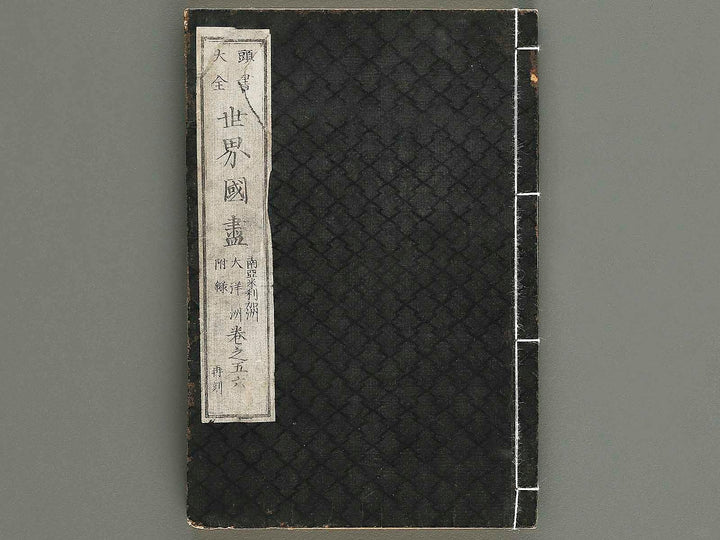 頭書
大全
世界國盡
南亞米利加洲
大洋洲
附録
卷之五六
再刻